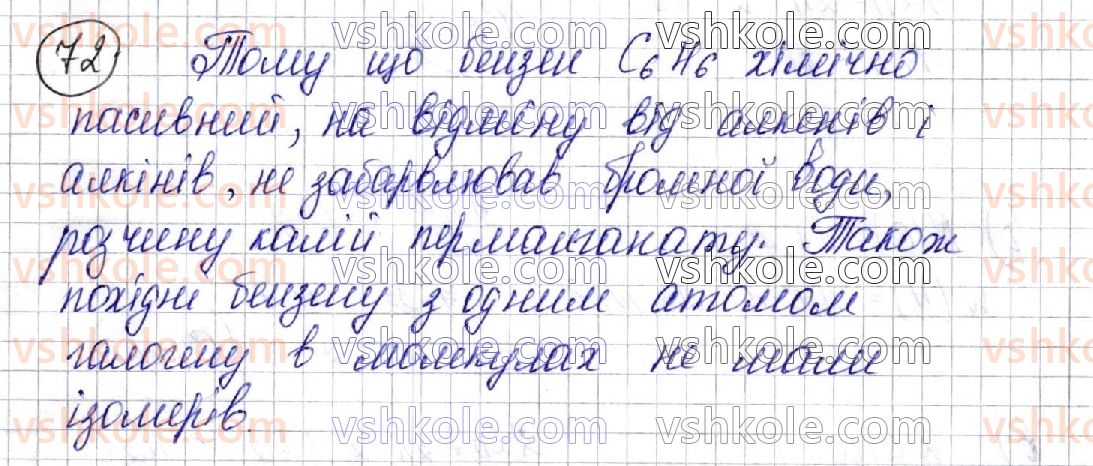 72 Тому що бензен C₆H₆ хімічно
пасивний, на відміну від алкенів і
алкінів, не забарвлював бромної води,
розчину калій перманганату. Також
похідні бензену з одним атомом
галогену в молекулах не мали
ізомерів.
vshkole.com